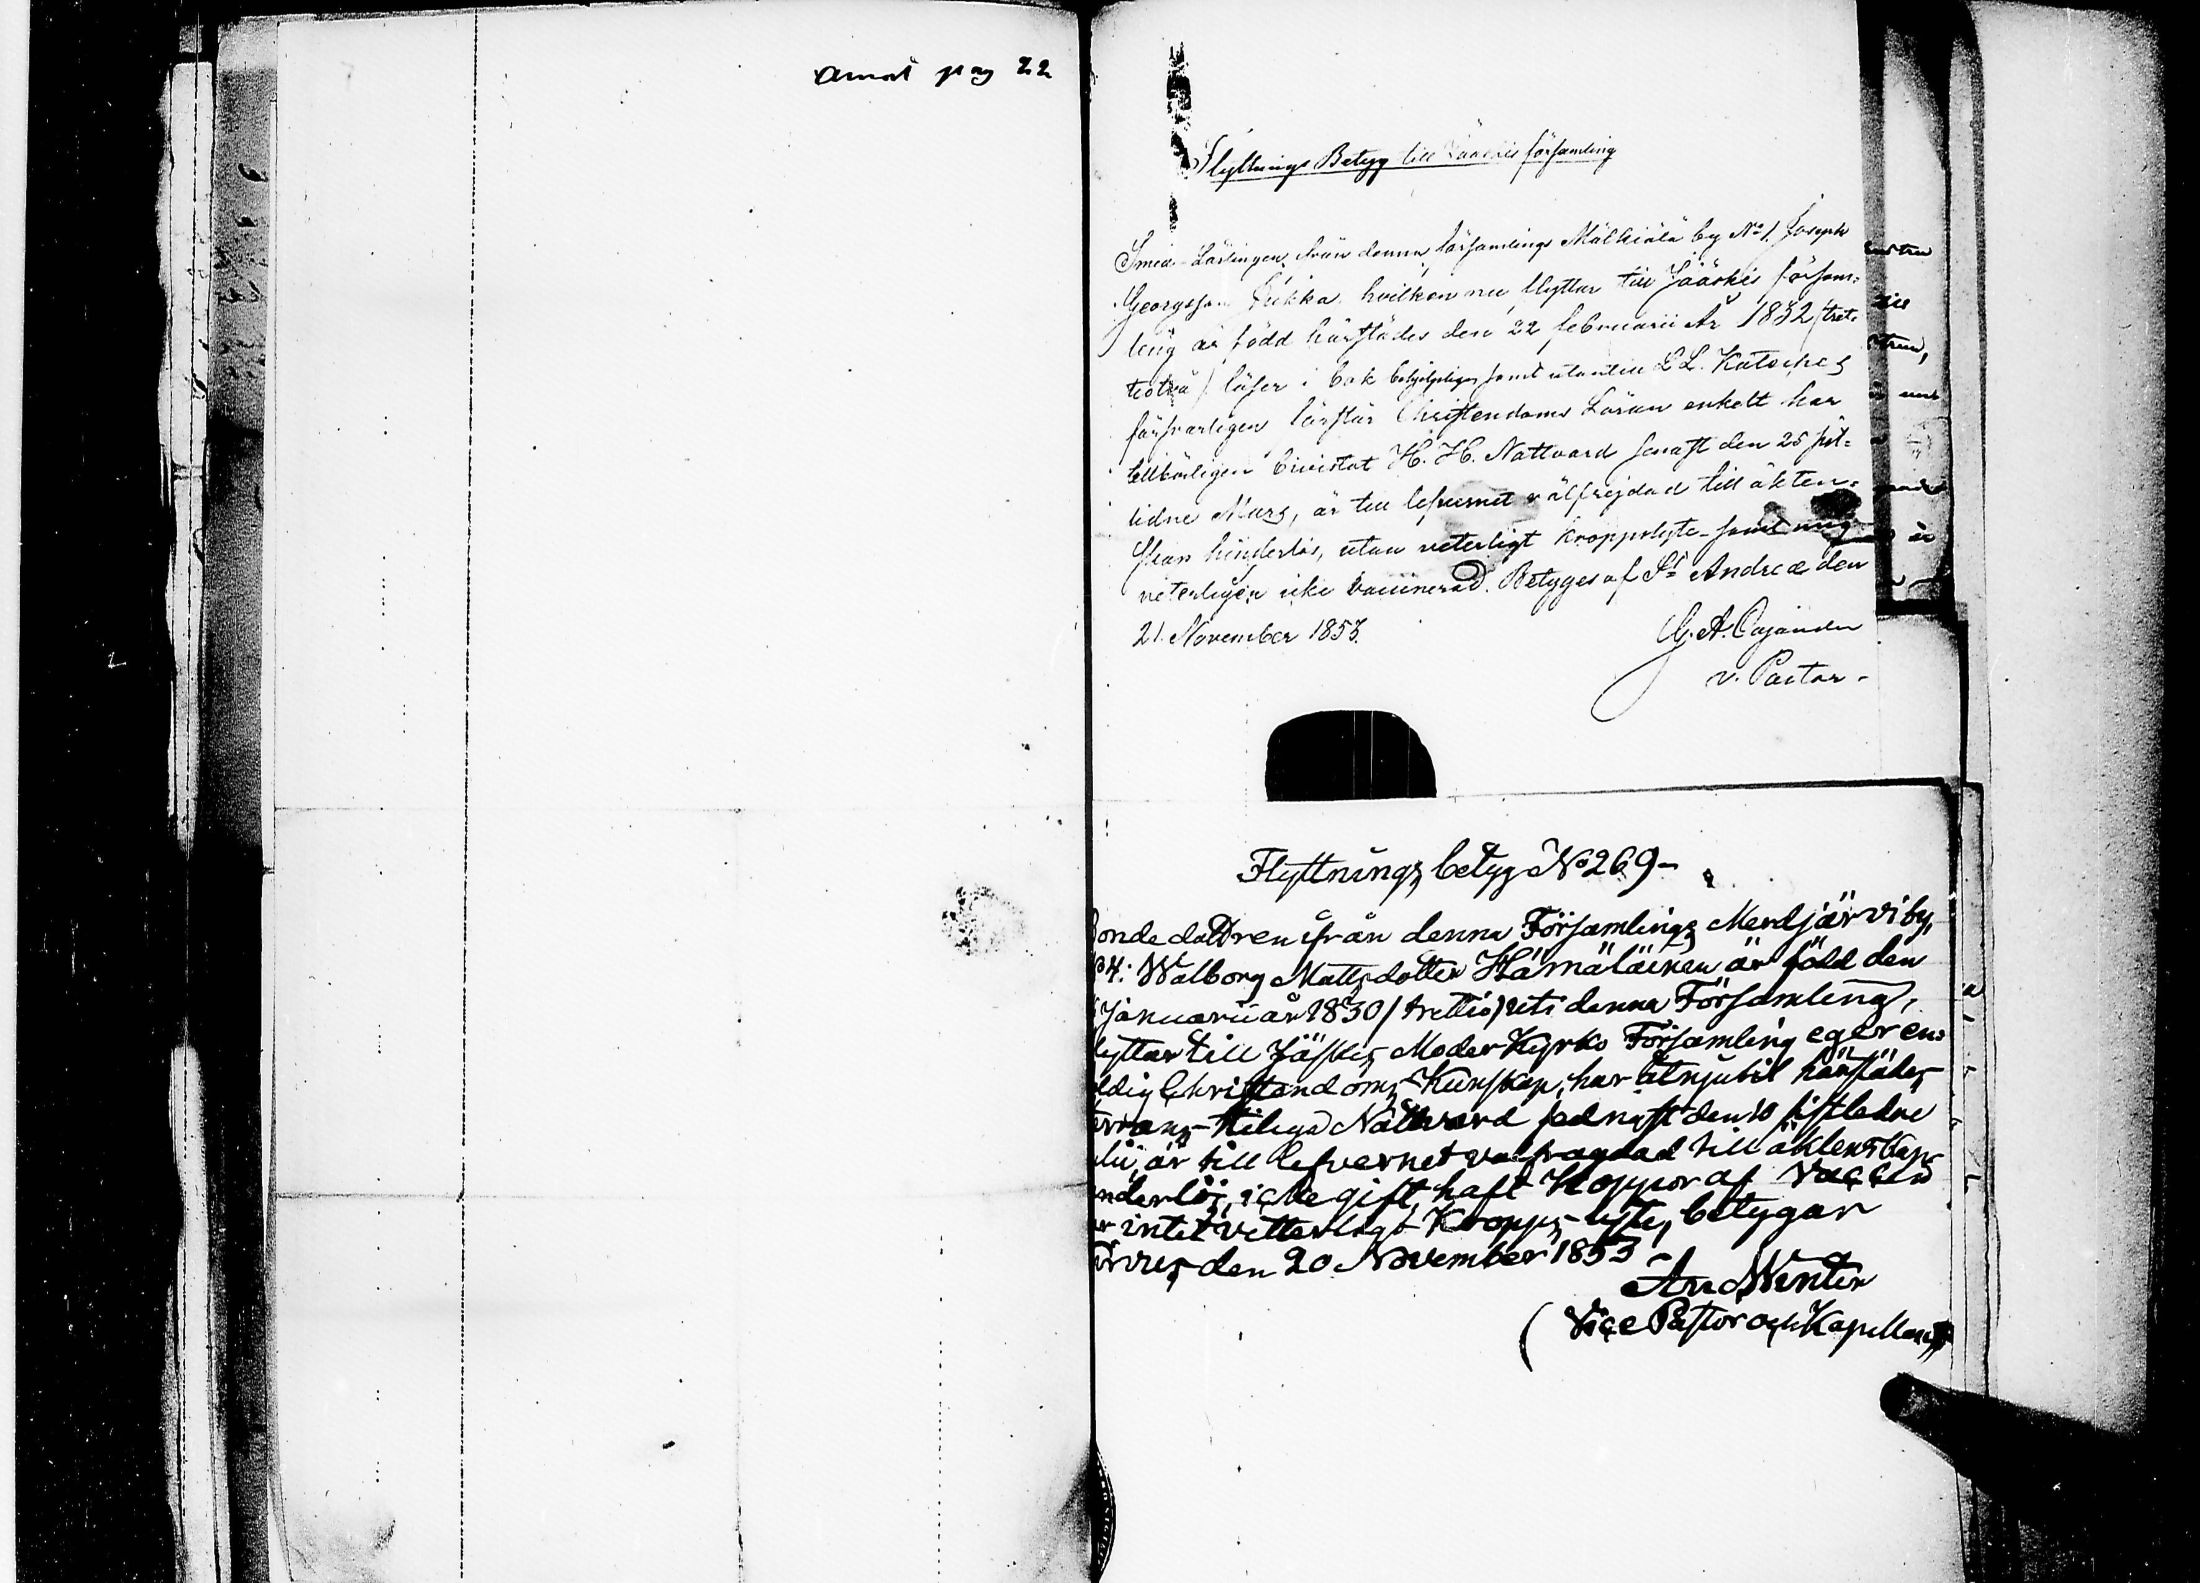 pag 22
Flyttnings Betyg till Jääskis församling
Smeds Lärlingen från denna församlings Mälkiälä by No 1. Joseph
Georgsson Pukka hvilken nu flyttar till Jääskis försam=
ling är född härstädes den 22 februarii År 1832 (tret-
tiotvå) läser i bok behjelpligen samt utantill L L. Kateches
försvarligen förstår Christendoms Läran enkelt har
tillbörligen bivistat H. H. Nattvard senast den 25 sist=
lidne Mars, är till lefvernet välfrejdad till äkten=
skap hinderlös, utan veterligt kroppslyte samt mig
veterligen icke vaccinerad. Betygges af St Andreæ den
21. November 1853.
G. A. Cajander
v. Pastor.
Flyttnings betyg No 269-
onde dottren ifrån denna Församlings Merdjärvi by,
4: Walborg Mattsdotter Hämäläinen är född den
Januarii år 1830 (trettio) uti denna Församling,
lyttar till Jäskis Moder Kyrko Församling eger en=
ldig Christendoms Kunskap, har åtnjutit härstädes
errans Heliga Nattvard sednast den 10 sistledne
uli, är till lefvernet välfrägdad till äktenskap
nderlös, icke gift, haft Koppor af Vaccin
r intet vetterligt Kropps-lyte, betygar
irvus den 20 November 1853
And Winter
Vice Pastor och Kapellan